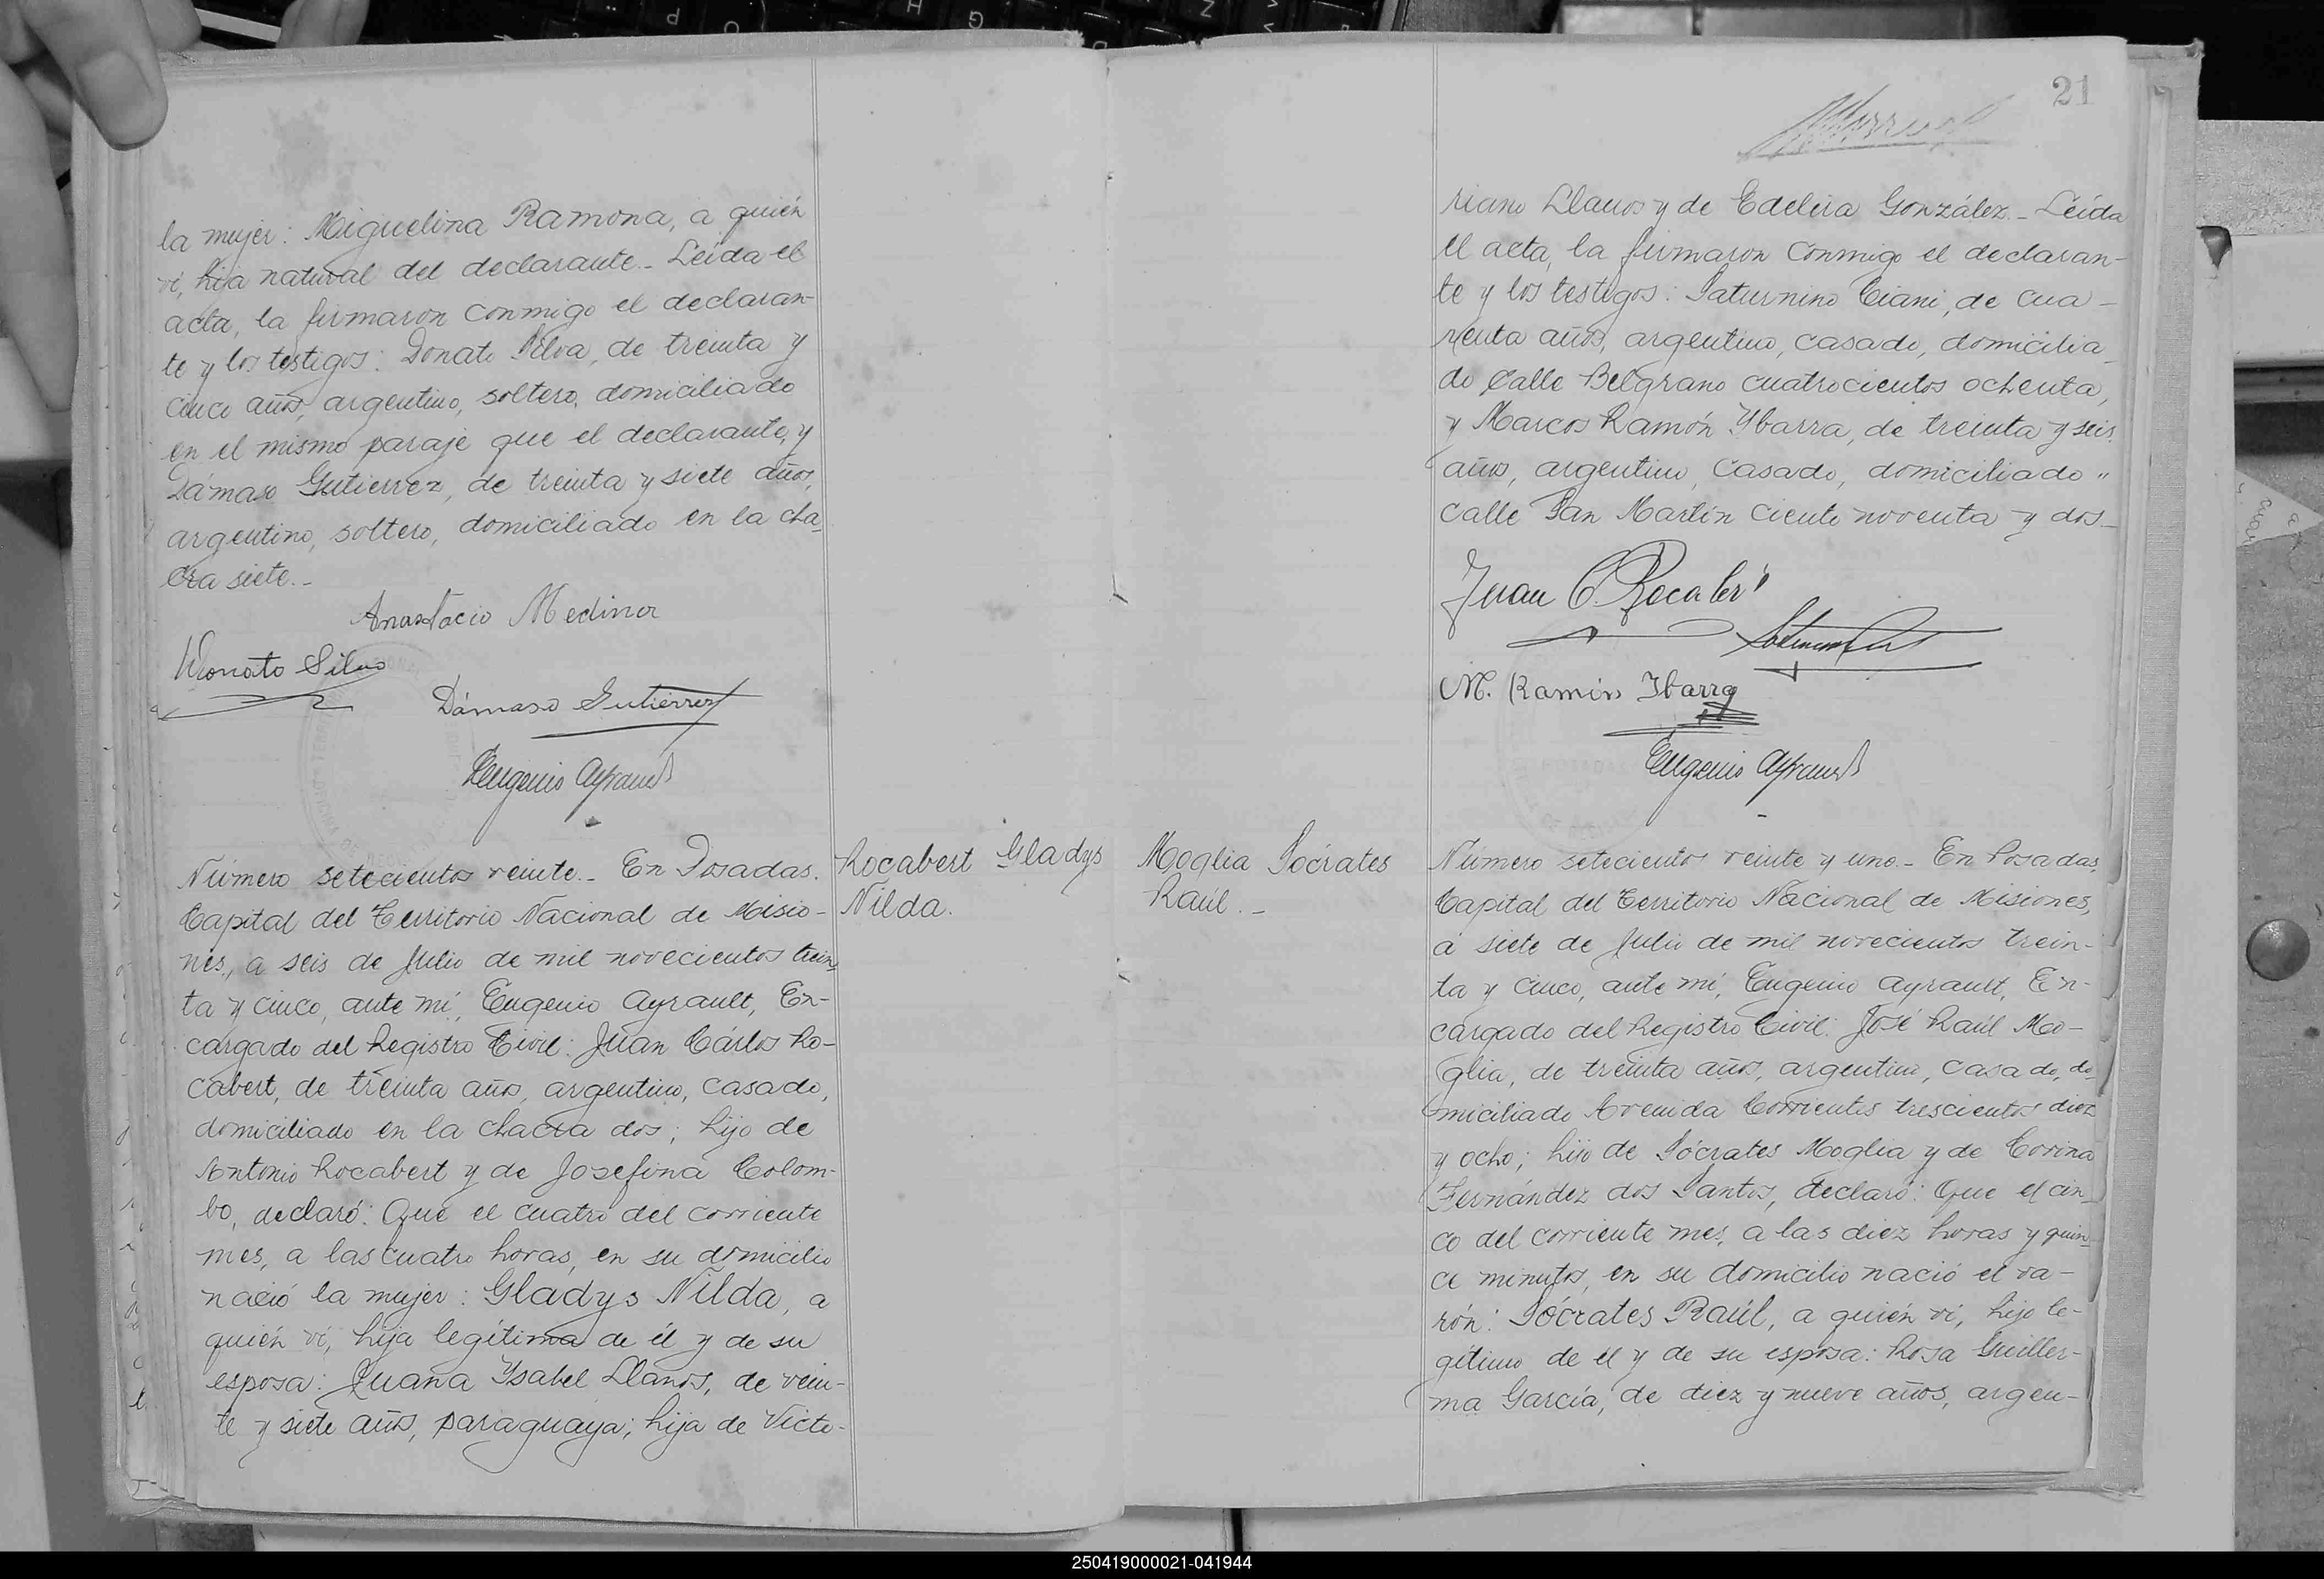 la mujer: Miguelina Ramona, a quién
ví, hija natural del declarante._ Leída el
acta, la firmaron conmigo el declaran-
te y los testigos: Donato Silva, de treinta y
cinco años, argentino, soltero, domiciliado
en el mismo paraje que el declarante, y
Dámaso Gutierrez, de treinta y siete años,
argentino, soltero, domiciliado en la cha-
cra siete._
Anastacio Medina
Donato Silva
Dámaso Gutierrez
Eugenio Ayrault
Rocabert Gladys
Nilda.
Número setecientos veinte._ En Posadas.
Capital del Territorio Nacional de Misio-
nes, a seis de Julio de mil novecientos trein-
ta y cinco, ante mí, Eugenio Ayrault, En-
cargado del Registro Civil: Juan Cárlos Ro-
cabert, de treinta años, argentino, casado,
domiciliado en la chacra dos; hijo de
Antonio Rocabert y de Josefina Colom-
bo, declaró: Que el cuatro del corriente
mes, a las cuatro horas, en su domicilio
nació la mujer: Gladys Nilda, a
quién ví, hija legítima de él y de su
esposa: Juana Ysabel Llanos, de vein-
te y siete años, paraguaya; hija de Victo-
21
riano Llanos y de Edelira González._ Leída
el acta, la firmaron conmigo el declaran-
te y los testigos: Saturnino Ciani, de cua-
renta años, argentino, casado, domicilia-
do calle Belgrano cuatrocientos ochenta,
y Marcos Ramón Ybarra, de treinta y seis
años, argentino, casado, domiciliado "
calle San Martín ciento noventa y dos._
Juan C. Rocabert
M. Ramón Ibarra
Eugenio Ayrault
Moglia Sócrates
Raúl._
Número setecientos veinte y uno._ En Posadas,
Capital del Territorio Nacional de Misiones,
a siete de Julio de mil novecientos trein-
ta y cinco, ante mí, Eugenio Ayrault, En-
cargado del Registro Civil: José Raúl Mo-
glia, de treinta años, argentino, casado, do-
miciliado Avenida Corrientes trescientos diez
y ocho; hijo de Sócrates Moglia y de Corina
Fernández dos Santos, declaró: Que el cin-
co del corriente mes, a las diez horas y quin-
ce minutos, en su domicilio nació el va-
rón: Sócrates Raúl, a quién ví, hijo le-
gítimo de él y de su esposa: Rosa Guiller-
ma García, de diez y nueve años, argen-
250419000021-041944